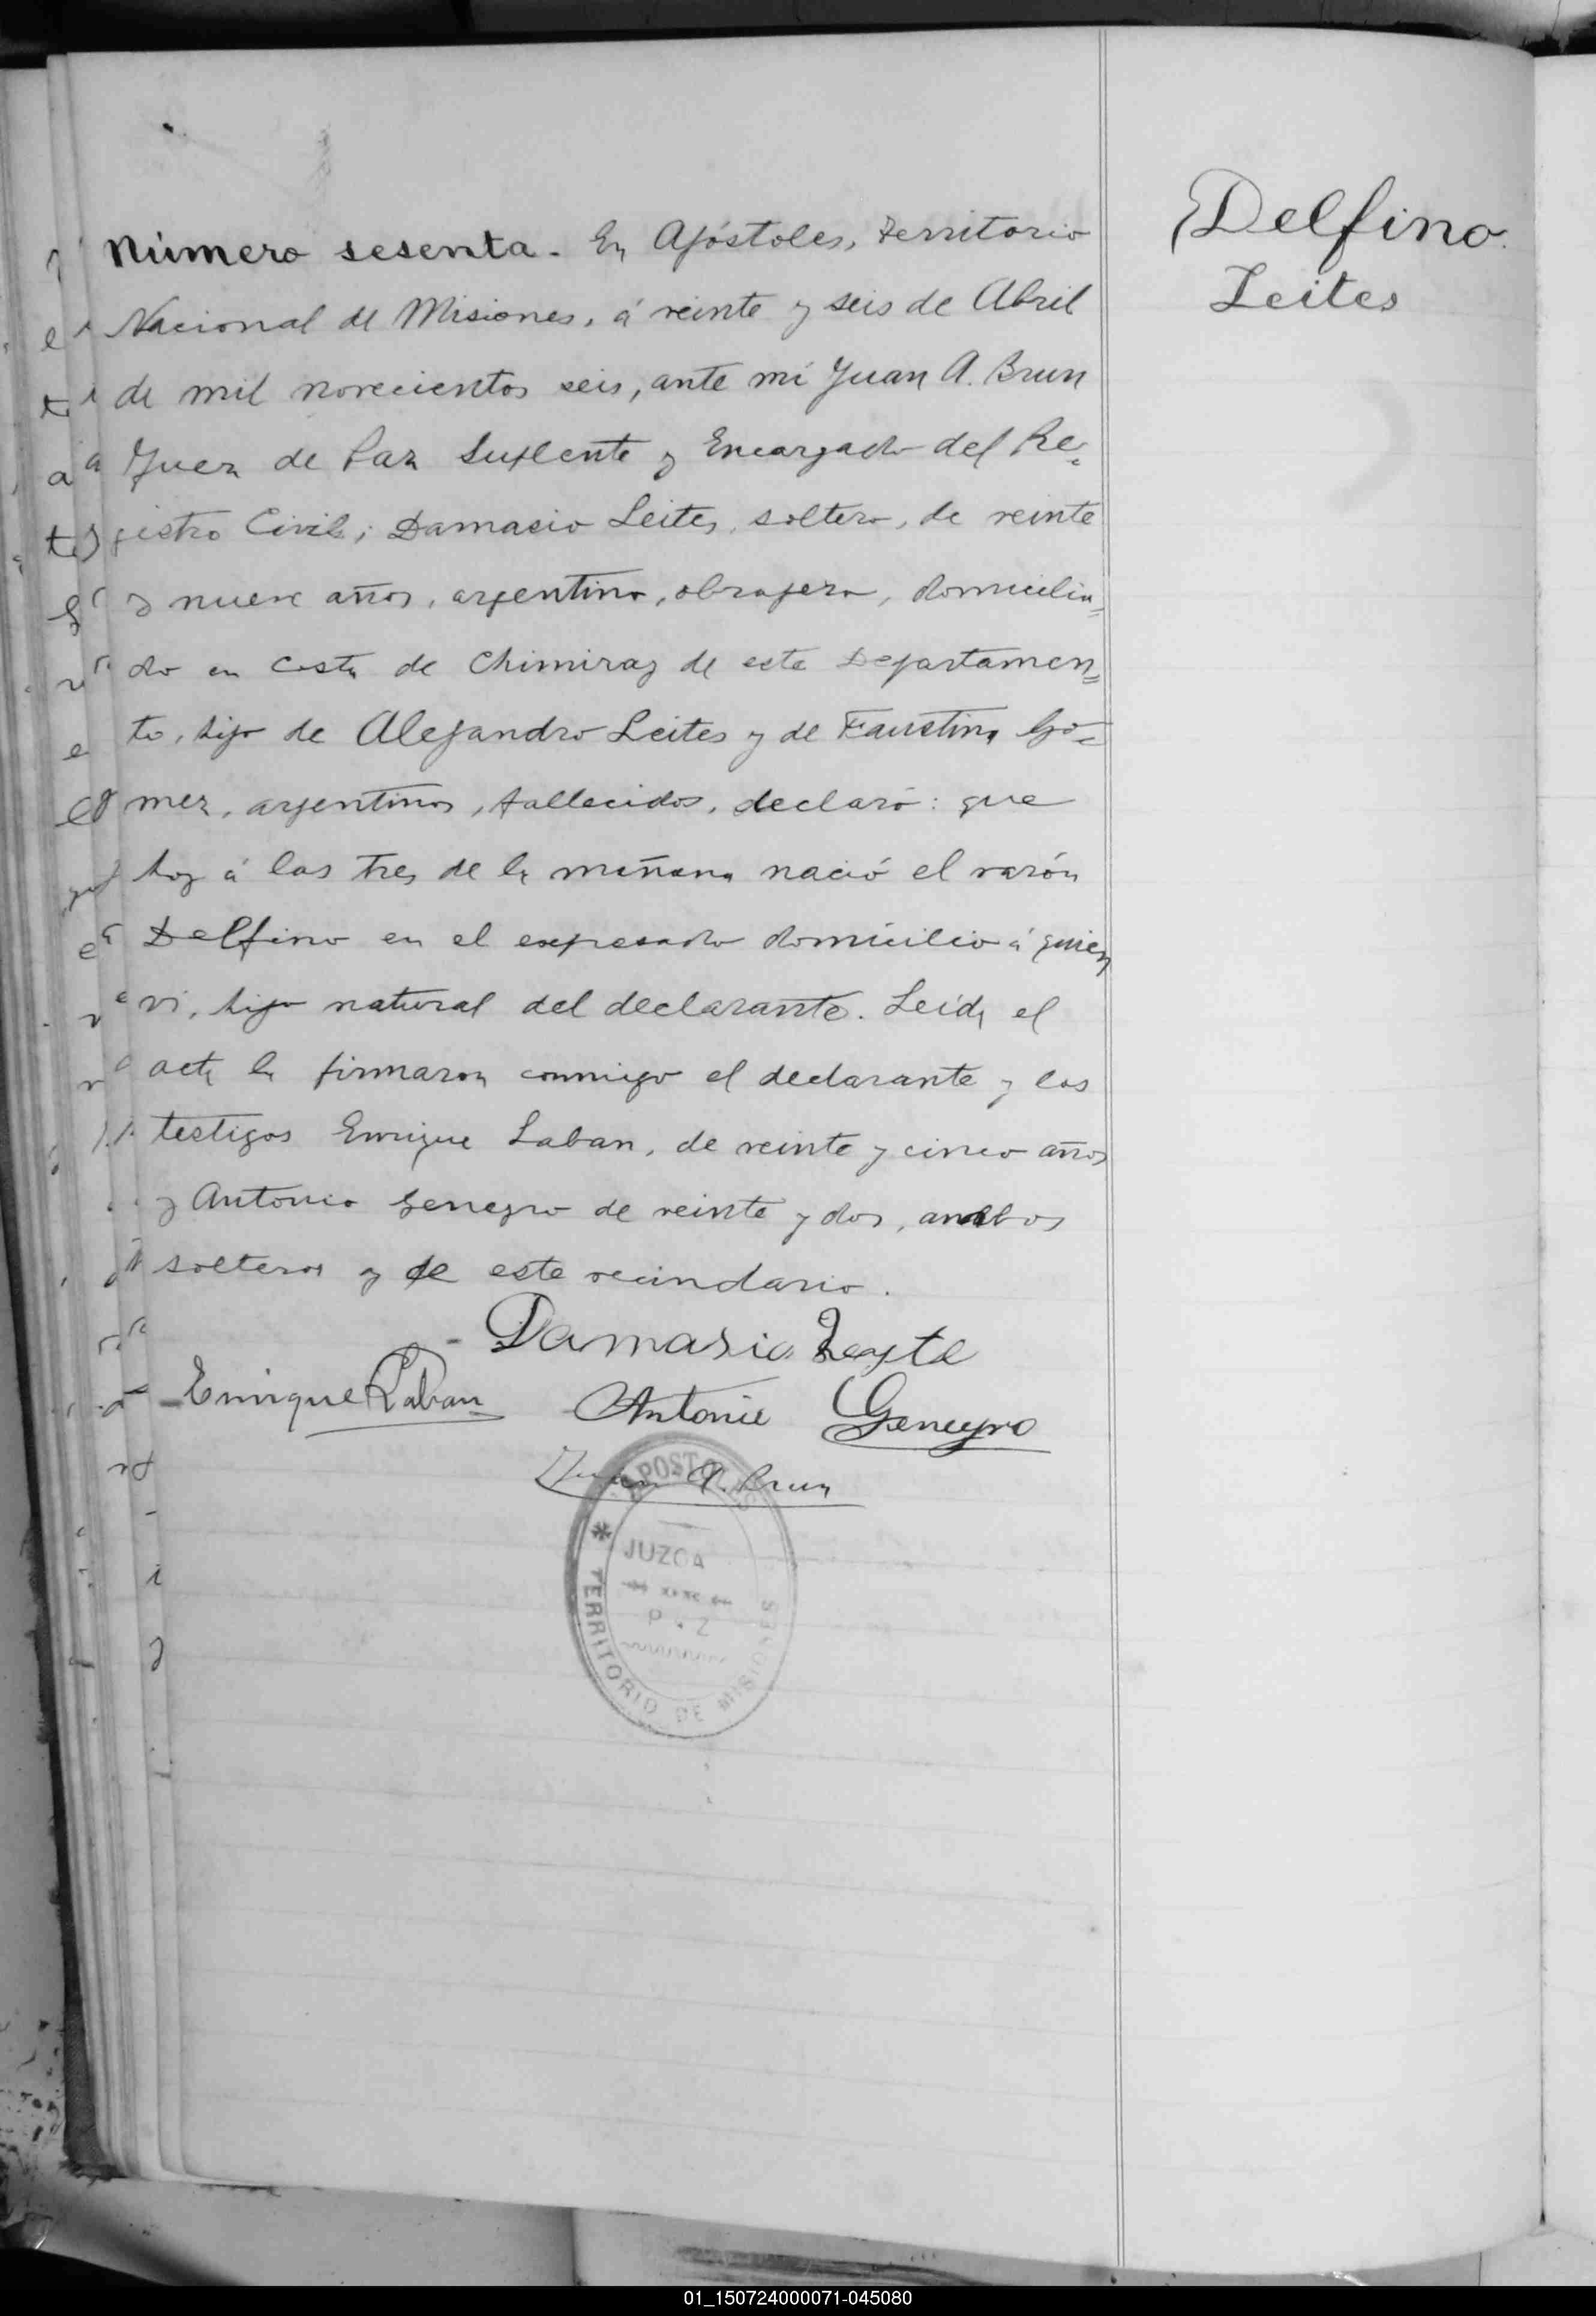 Delfino.
Leites
Número sesenta. En Apóstoles, Territorio
Nacional de Misiones, á veinte y seis de Abril
de mil novecientos seis, ante mi Juan A. Brun
Juez de Paz Suplente y Encargado del Re=
gistro Civil; Damasio Leites, soltero, de veinte
y nueve años, argentino, obrajero, domicilia=
do en Costa de Chimiray de este Departamen=
to, hijo de Alejandro Leites y de Faustina Gó=
mez, argentinos, fallecidos, declaró: que
hoy á las tres de la mañana nació el varón
Delfino en el expresado domicilio á quien
ví, hijo natural del declarante. Leída el
acta la firmaron conmigo el declarante y los
testigos Enrique Laban, de veinte y cinco años
y Antonio Genegro de veinte y dos, ambos
solteros y de este vecindario.
Damasio Leyte
Enrique Laban Antonio Genegro
Juan A. Brun
APOSTOLES
JUZGA
P Z
TERRITORIO DE MISIONES
01_150724000071-045080